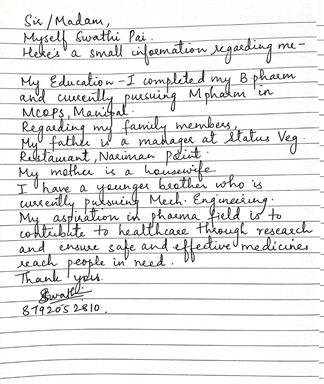 Sir/Madam,
Myself Swathi Pai.
Here's a small information regarding me-
My Education - I completed my B.pharm
and currently pursuing Mpharm in
MCOPS, Manipal.
Regarding my family members,
My father is a manager at Status Veg
Restaurant, Nariman Point.
My mother is a housewife
I have a younger brother who is
currently pursuing Mech. Engineering.
My aspiration in pharma field is to
contribute to healthcare through research
and ensure safe and effective medicines
reach people in need.
Thank you.
Swathi
8792052810.